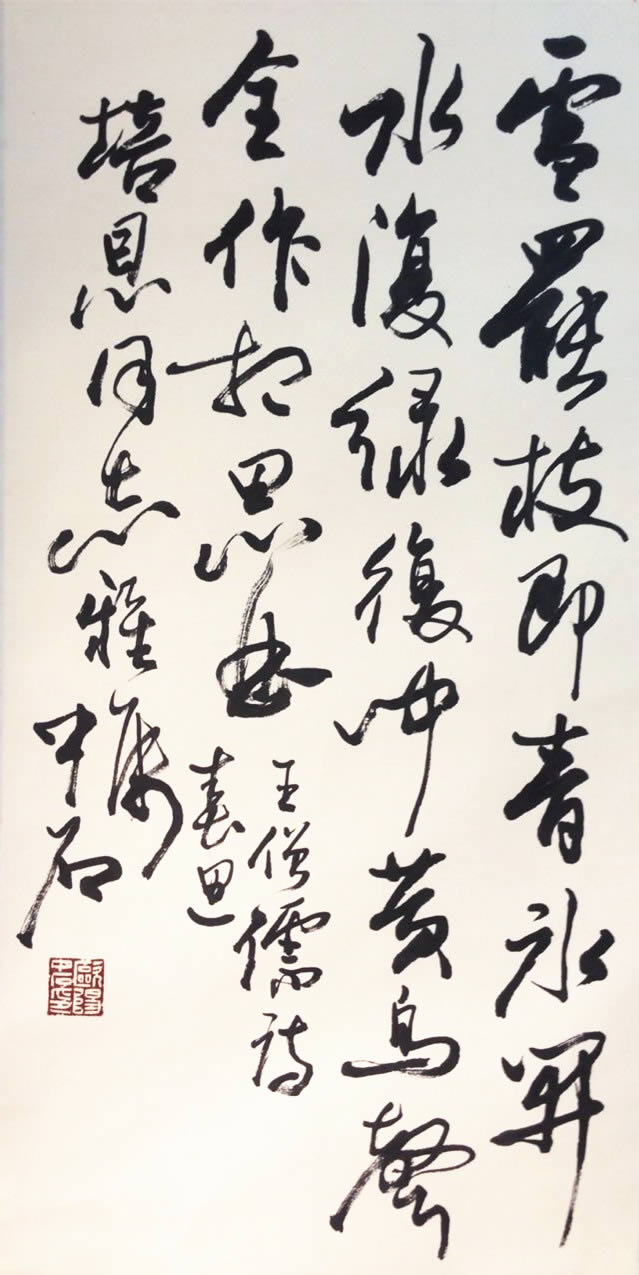 雪罷枝即青冰開
水復綠復聞黃鳥聲
全作相思曲
王僧儒詩
春思
培恩同志雅囑
中石